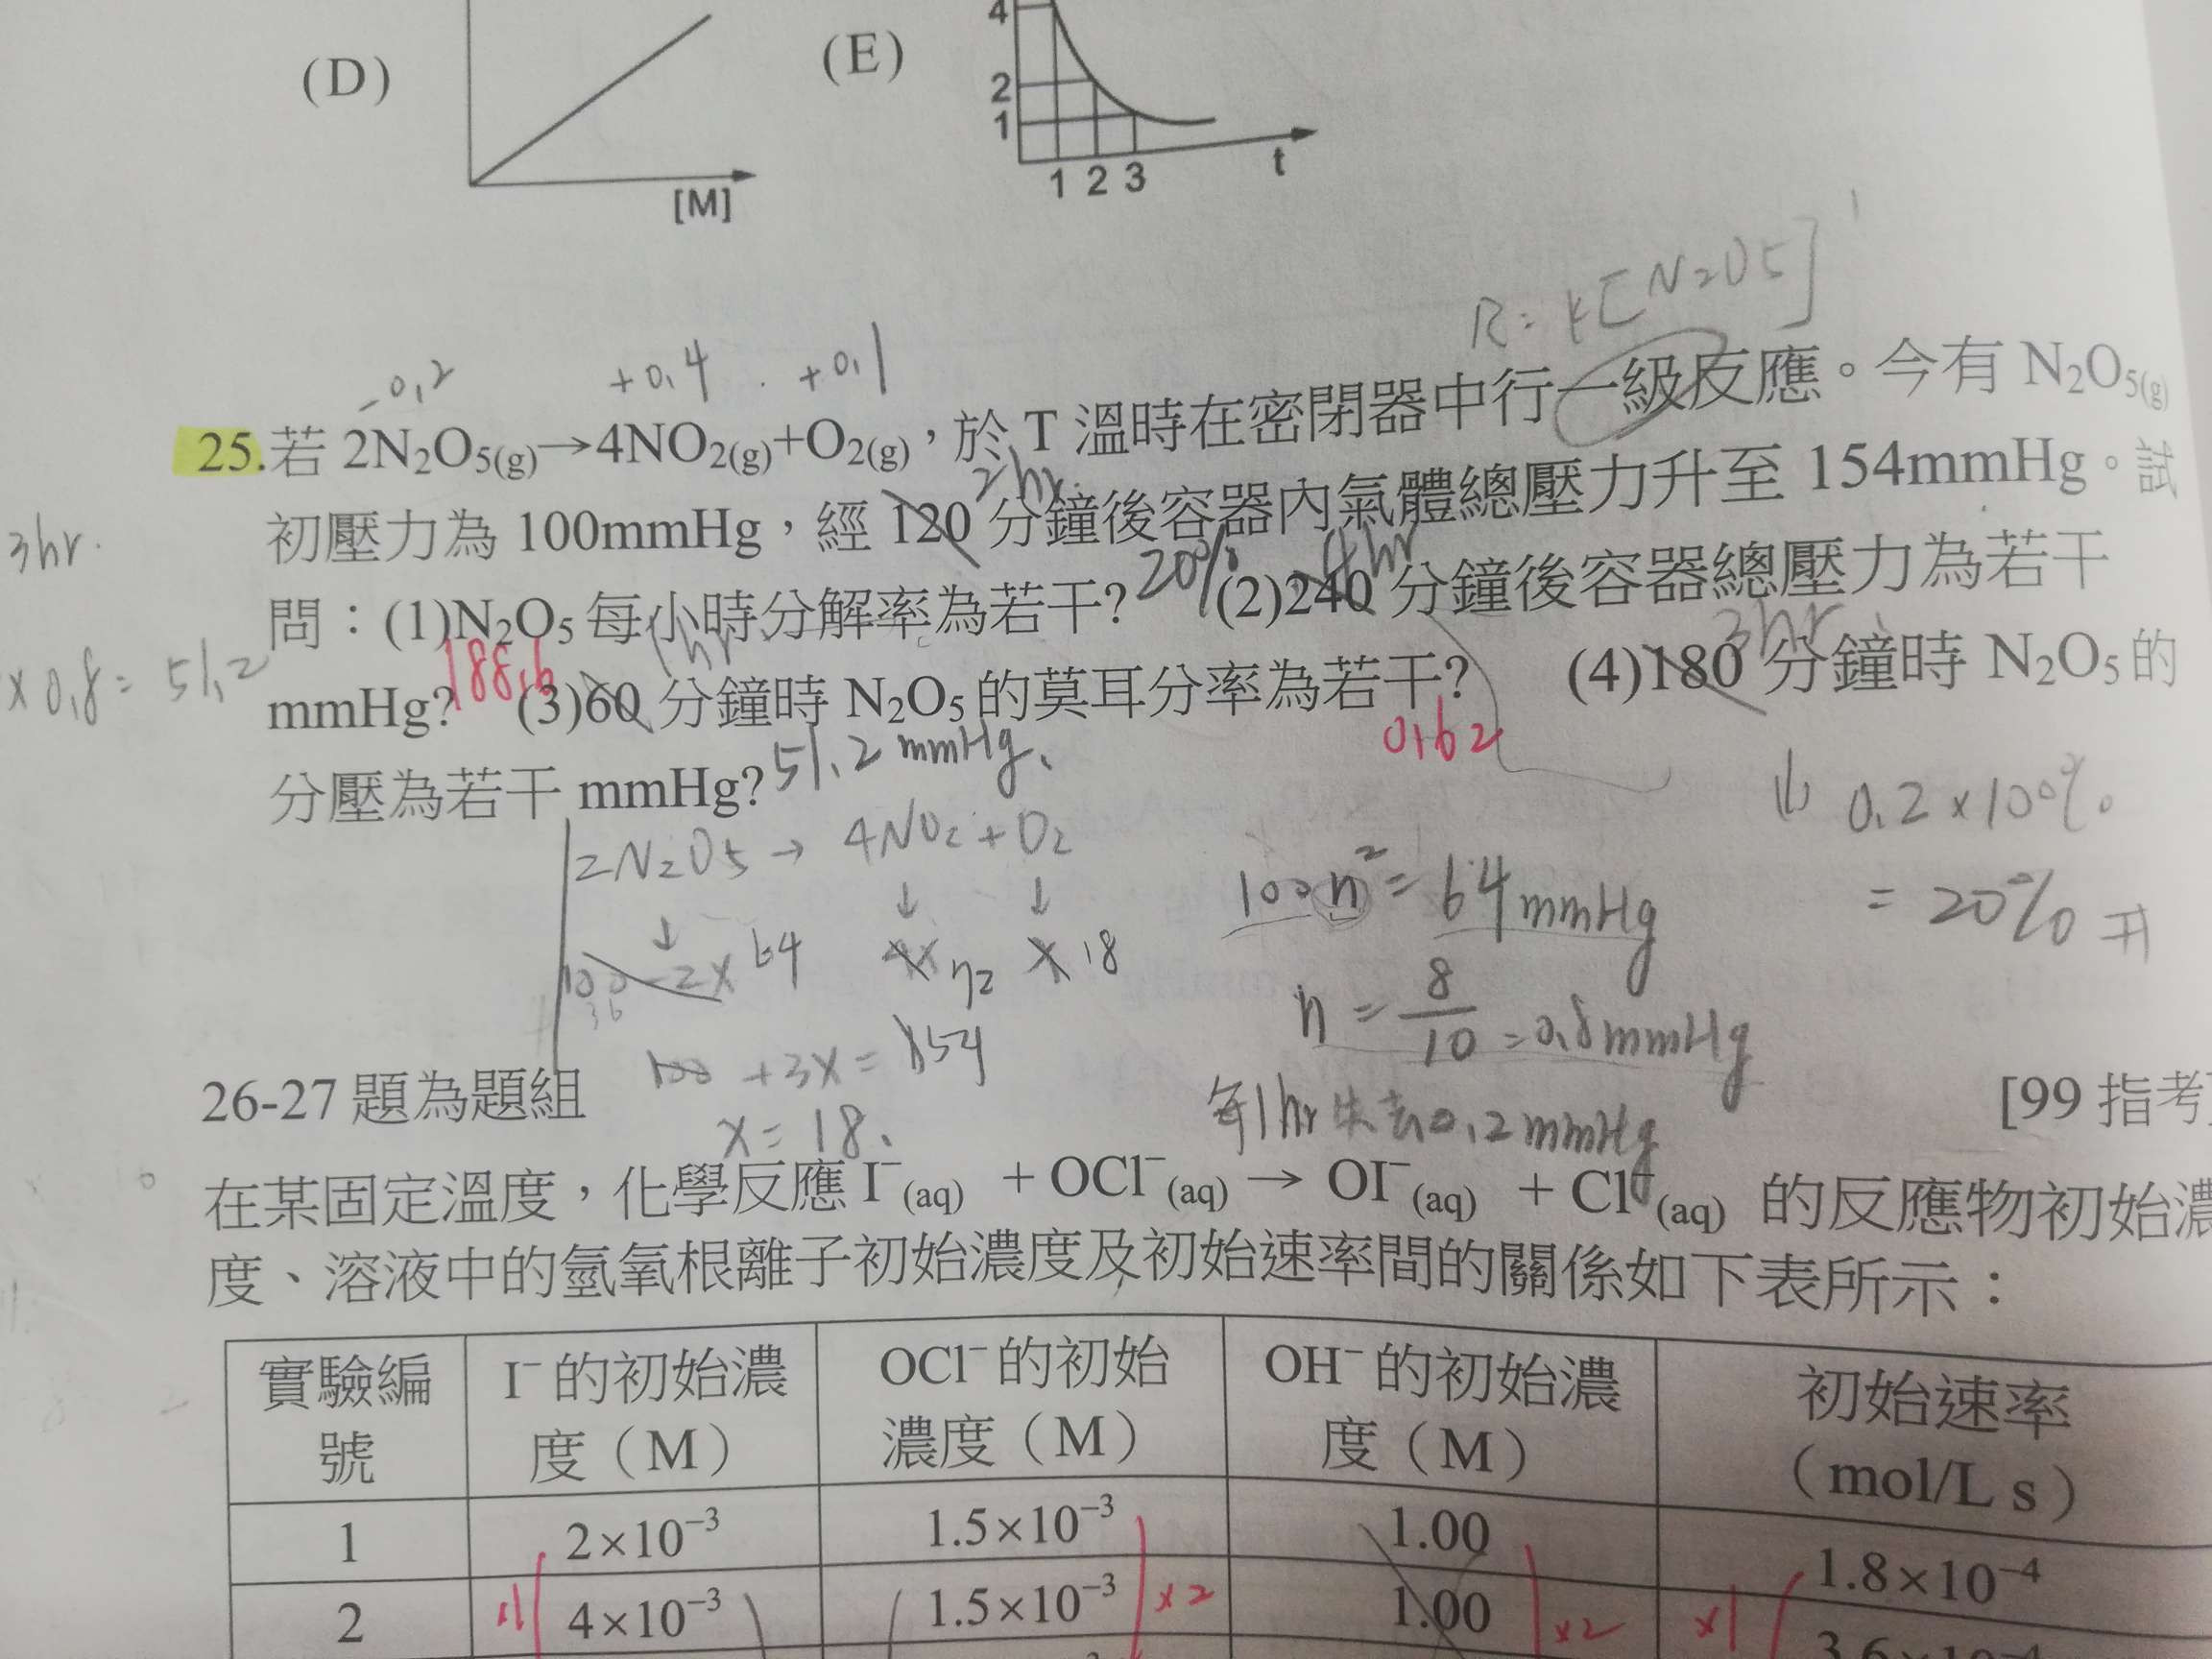 (D)
[M]
(E)
4
2
1
1 2 3
t
R = k[N2O5]¹
-0.2 +0.4 +0.1
25.若 2N₂O₅(g)→4NO₂(g)+O₂(g)，於 T 溫時在密閉器中行一級反應。今有 N₂O₅(g)
2hr.
初壓力為 100mmHg，經 120 分鐘後容器內氣體總壓力升至 154mmHg。試
3hr.
20% 4hr
問：(1)N₂O₅ 每小時分解率為若干? (2)240 分鐘後容器總壓力為若干
188.6 1hr 3hr
mmHg? (3)60 分鐘時 N₂O₅ 的莫耳分率為若干? (4)180 分鐘時 N₂O₅ 的
× 0.8 = 51.2
0.62
分壓為若干 mmHg? 51.2 mmHg.
2N2O5 → 4NO2 + O2
↓ ↓ ↓
100-2x 64 4x 72 x 18
36
100 + 3x = 154
x = 18.
100n² = 64mmHg
n = 8/10 = 0.8mmHg
每1hr失去0.2mmHg
↓ 0.2×100%
= 20%
26-27 題為題組 [99 指考]
在某固定溫度，化學反應 I⁻(aq) + OCl⁻(aq) → OI⁻(aq) + Cl⁻(aq) 的反應物初始濃
度、溶液中的氫氧根離子初始濃度及初始速率間的關係如下表所示：
實驗編號 I⁻ 的初始濃度（M） OCl⁻ 的初始濃度（M） OH⁻ 的初始濃度（M） 初始速率（mol/L s）
1 2×10⁻³ 1.5×10⁻³ 1.00 1.8×10⁻⁴
2 4×10⁻³ 1.5×10⁻³ 1.00 3.6×10⁻⁴
×2 ×2 ×1